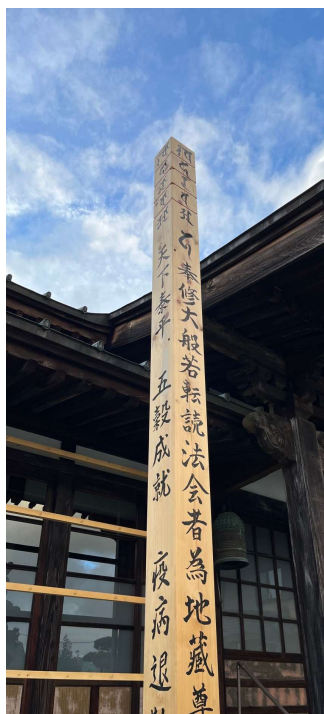 奉修大般若転読法会者為地蔵尊
天下泰平 五穀成就 疫病退